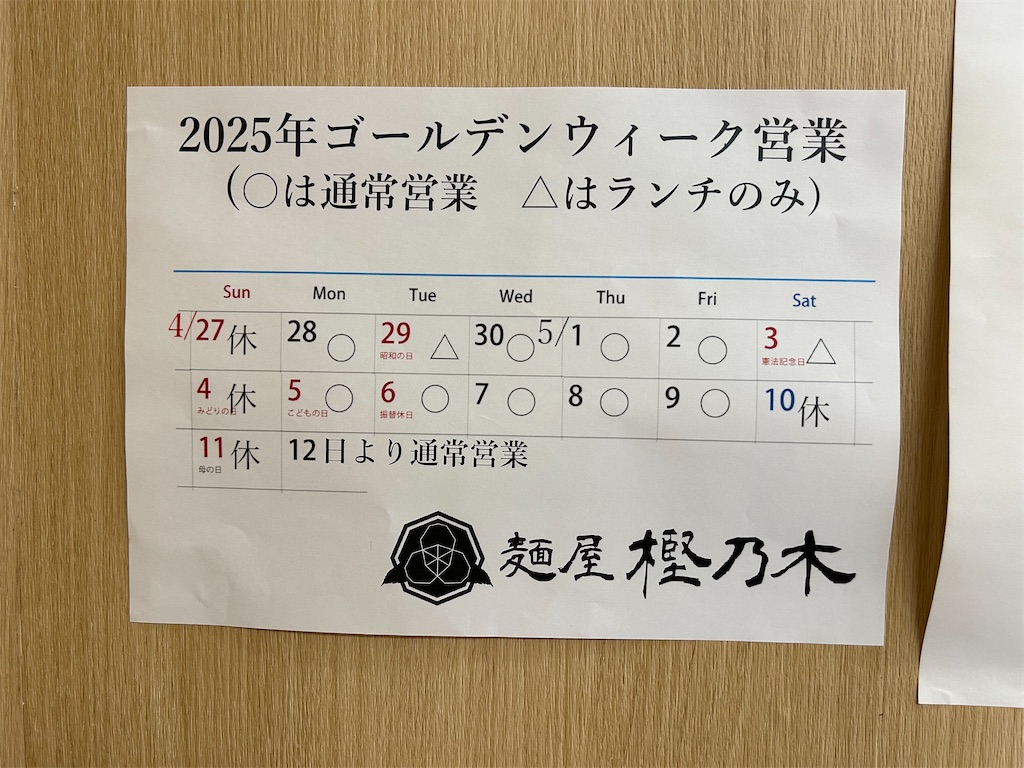 2025年ゴールデンウィーク営業
(○は通常営業　△はランチのみ)
Sun Mon Tue Wed Thu Fri Sat
4/27 休 28 ○ 29 昭和の日 △ 30 ○ 5/1 ○ 2 ○ 3 憲法記念日 △
4 みどりの日 休 5 こどもの日 ○ 6 振替休日 ○ 7 ○ 8 ○ 9 ○ 10 休
11 母の日 休 12日より通常営業
麺屋 樫乃木